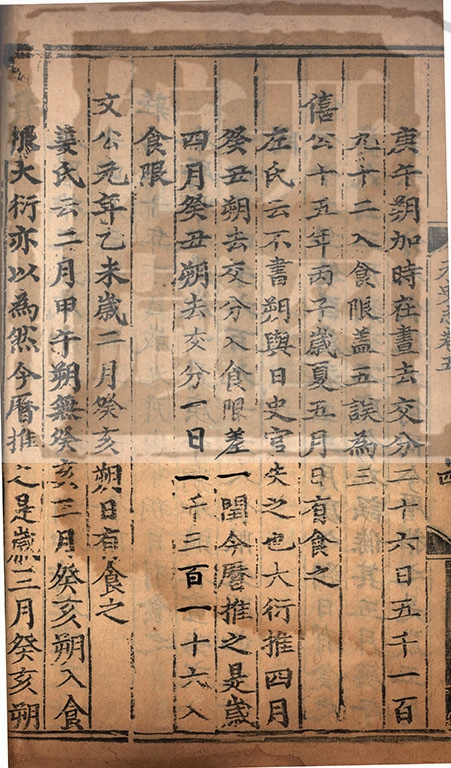 元史志卷五
庚午朔加時在晝去交分二十六日五千一百
九十二入食限盖五誤為三
僖公十五年丙子歲夏五月日有食之
左氏云不書朔與日史官失之也大衍推四月
癸丑朔去交分入食限差一閏今曆推之是歲
四月癸丑朔去交分一日一千三百一十六入
食限
文公元年乙未歲二月癸亥朔日有食之
姜氏云二月甲午朔無癸亥三月癸亥朔入食
限大衍亦以為然今曆推之是歲三月癸亥朔